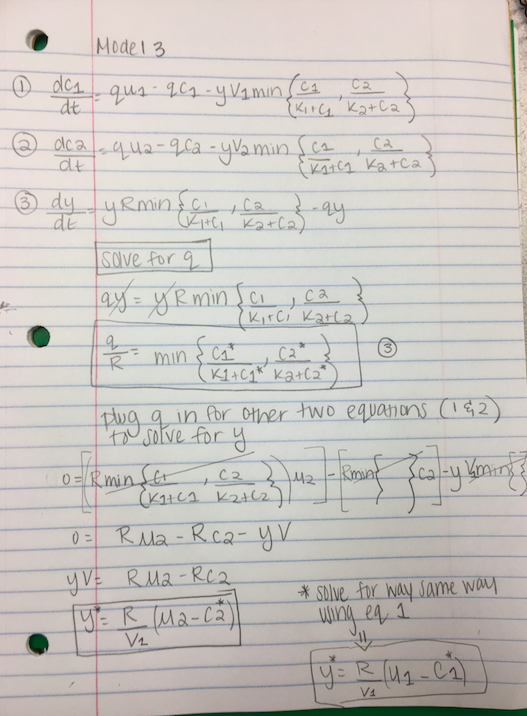 Model 3
① dc1/dt = qu1 - qc1 - yV1min{c1/K1+c1, c2/K2+c2}
② dc2/dt = qu2 - qc2 - yV2min{c1/K1+c1, c2/K2+c2}
③ dy/dt = yRmin{c1/K1+c1, c2/K2+c2} - qy
solve for q
qy = yRmin{c1/K1+c1, c2/K2+c2}
q/R = min{c1*/K1+c1*, c2*/K2+c2*} ③
plug q in for other two equations (1 & 2)
to solve for y
0 = [(Rmin{c1/K1+c1, c2/K2+c2})u2] - [Rmin{ }c2] - yVmin{}
0 = Ru2 - Rc2 - yV
yV = Ru2 - Rc2
y* = R/V2 (u2 - c2*)
* solve for way same way
using eq. 1
⇓
y* = R/V1 (u1 - c1*)